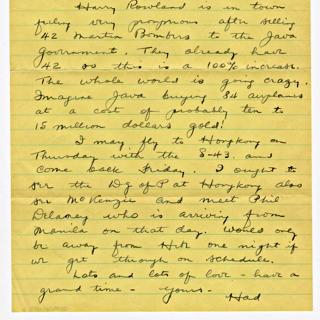 Harry Rowland is in town
feeling very prosperous after selling
42 Martin Bombers to the Java
Government. They already have
42 so this is a 100% increase.
The whole world is going crazy.
Imagine Java buying 84 airplanes
at a cost of probably ten to
15 million dollars gold!
I may fly to Hongkong on
Thursday with the S-43. and
come back Friday. I ought to
see the Dg of P at Hongkong also
see McKenzie and meet Phil
Delaney who is arriving from
Manila on that day. Would only
be away from one night if
we get through on schedule.
Lots and lots of love - have a
grand time - yours -
Had